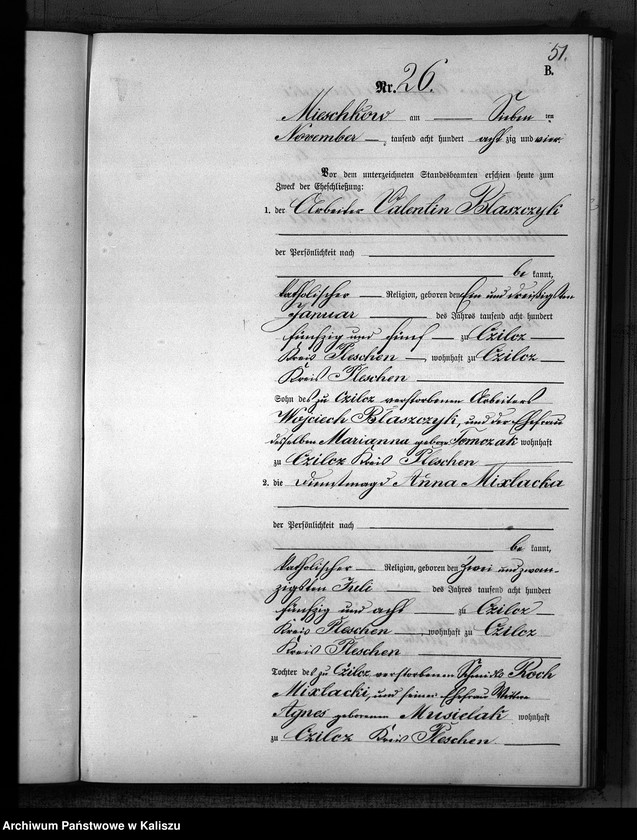 51.
B.
Nr. 26.
Mieschkow am — Sieben ten
November —, tausend acht hundert achtzig und vier
Vor dem unterzeichneten Standesbeamten erschien heute zum
Zweck der Eheschließung:
1. der Arbeiter Valentin Błaszczyk
der Persönlichkeit nach
be kannt,
katholischer — Religion, geboren den Ein und dreißigsten
Januar — des Jahres tausend acht hundert
fünfzig und fünf — zu Czilcz —
Kreis Pleschen —, wohnhaft zu Czilcz —
Kreis Pleschen —
Sohn des zu Czilcz verstorbenen Arbeiters
Wojciech Błaszczyk, und der Ehefrau
desselben Marianna geborne Tomczak wohnhaft
zu Czilcz Kreis Pleschen —
2. die Dienstmagd Anna Mixlacka
der Persönlichkeit nach
be kannt,
katholischer — Religion, geboren den Zwei und zwan-
zigsten Juli — des Jahres tausend acht hundert
fünfzig und acht — zu Czilcz —
Kreis Pleschen —, wohnhaft zu Czilcz
Kreis Pleschen —
Tochter des zu Czilcz verstorbenen Schmieds Roch
Mixlacki, und seiner Ehefrau Wittwe
Agnes geborenen Musielak wohnhaft
zu Czilcz Kreis Pleschen. —
Archiwum Państwowe w Kaliszu